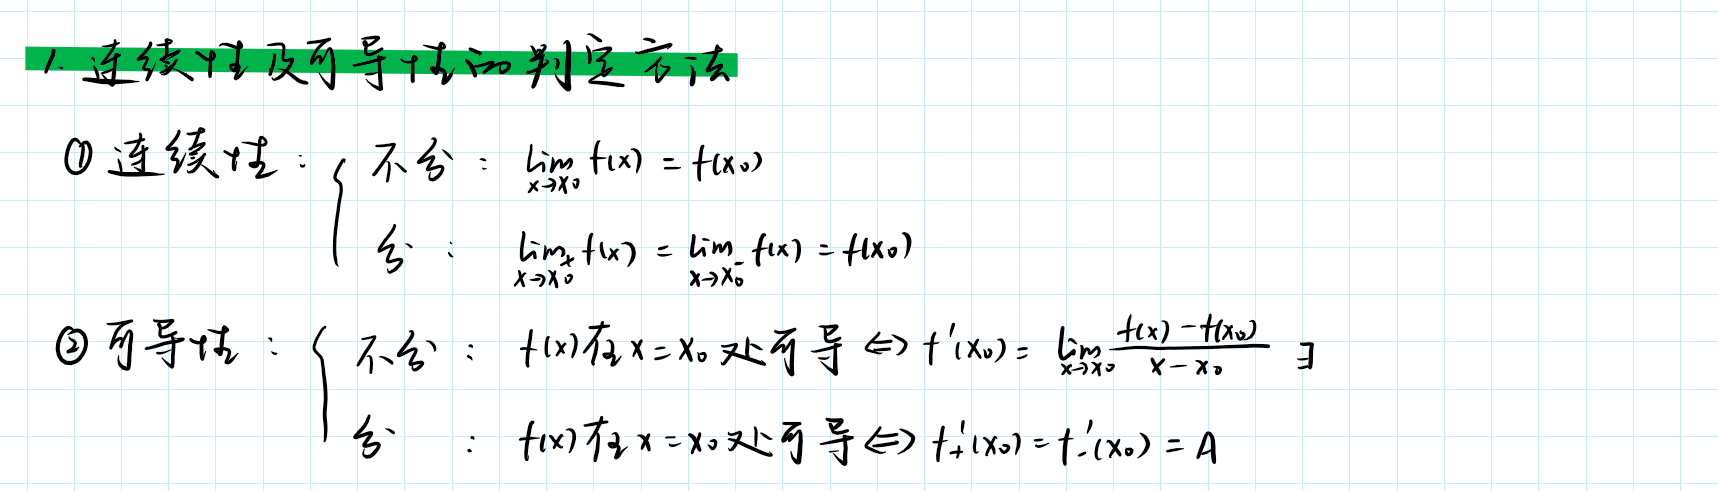 1. 连续性及可导性的判定方法
① 连续性：{ 不分： lim_{x→x₀} f(x) = f(x₀)
分： lim_{x→x₀⁺} f(x) = lim_{x→x₀⁻} f(x) = f(x₀)
② 可导性：{ 不分： f(x)在x=x₀处可导 ⇔ f'(x₀) = lim_{x→x₀} (f(x)-f(x₀))/(x-x₀) ∃
分： f(x)在x=x₀处可导 ⇔ f₊'(x₀) = f₋'(x₀) = A